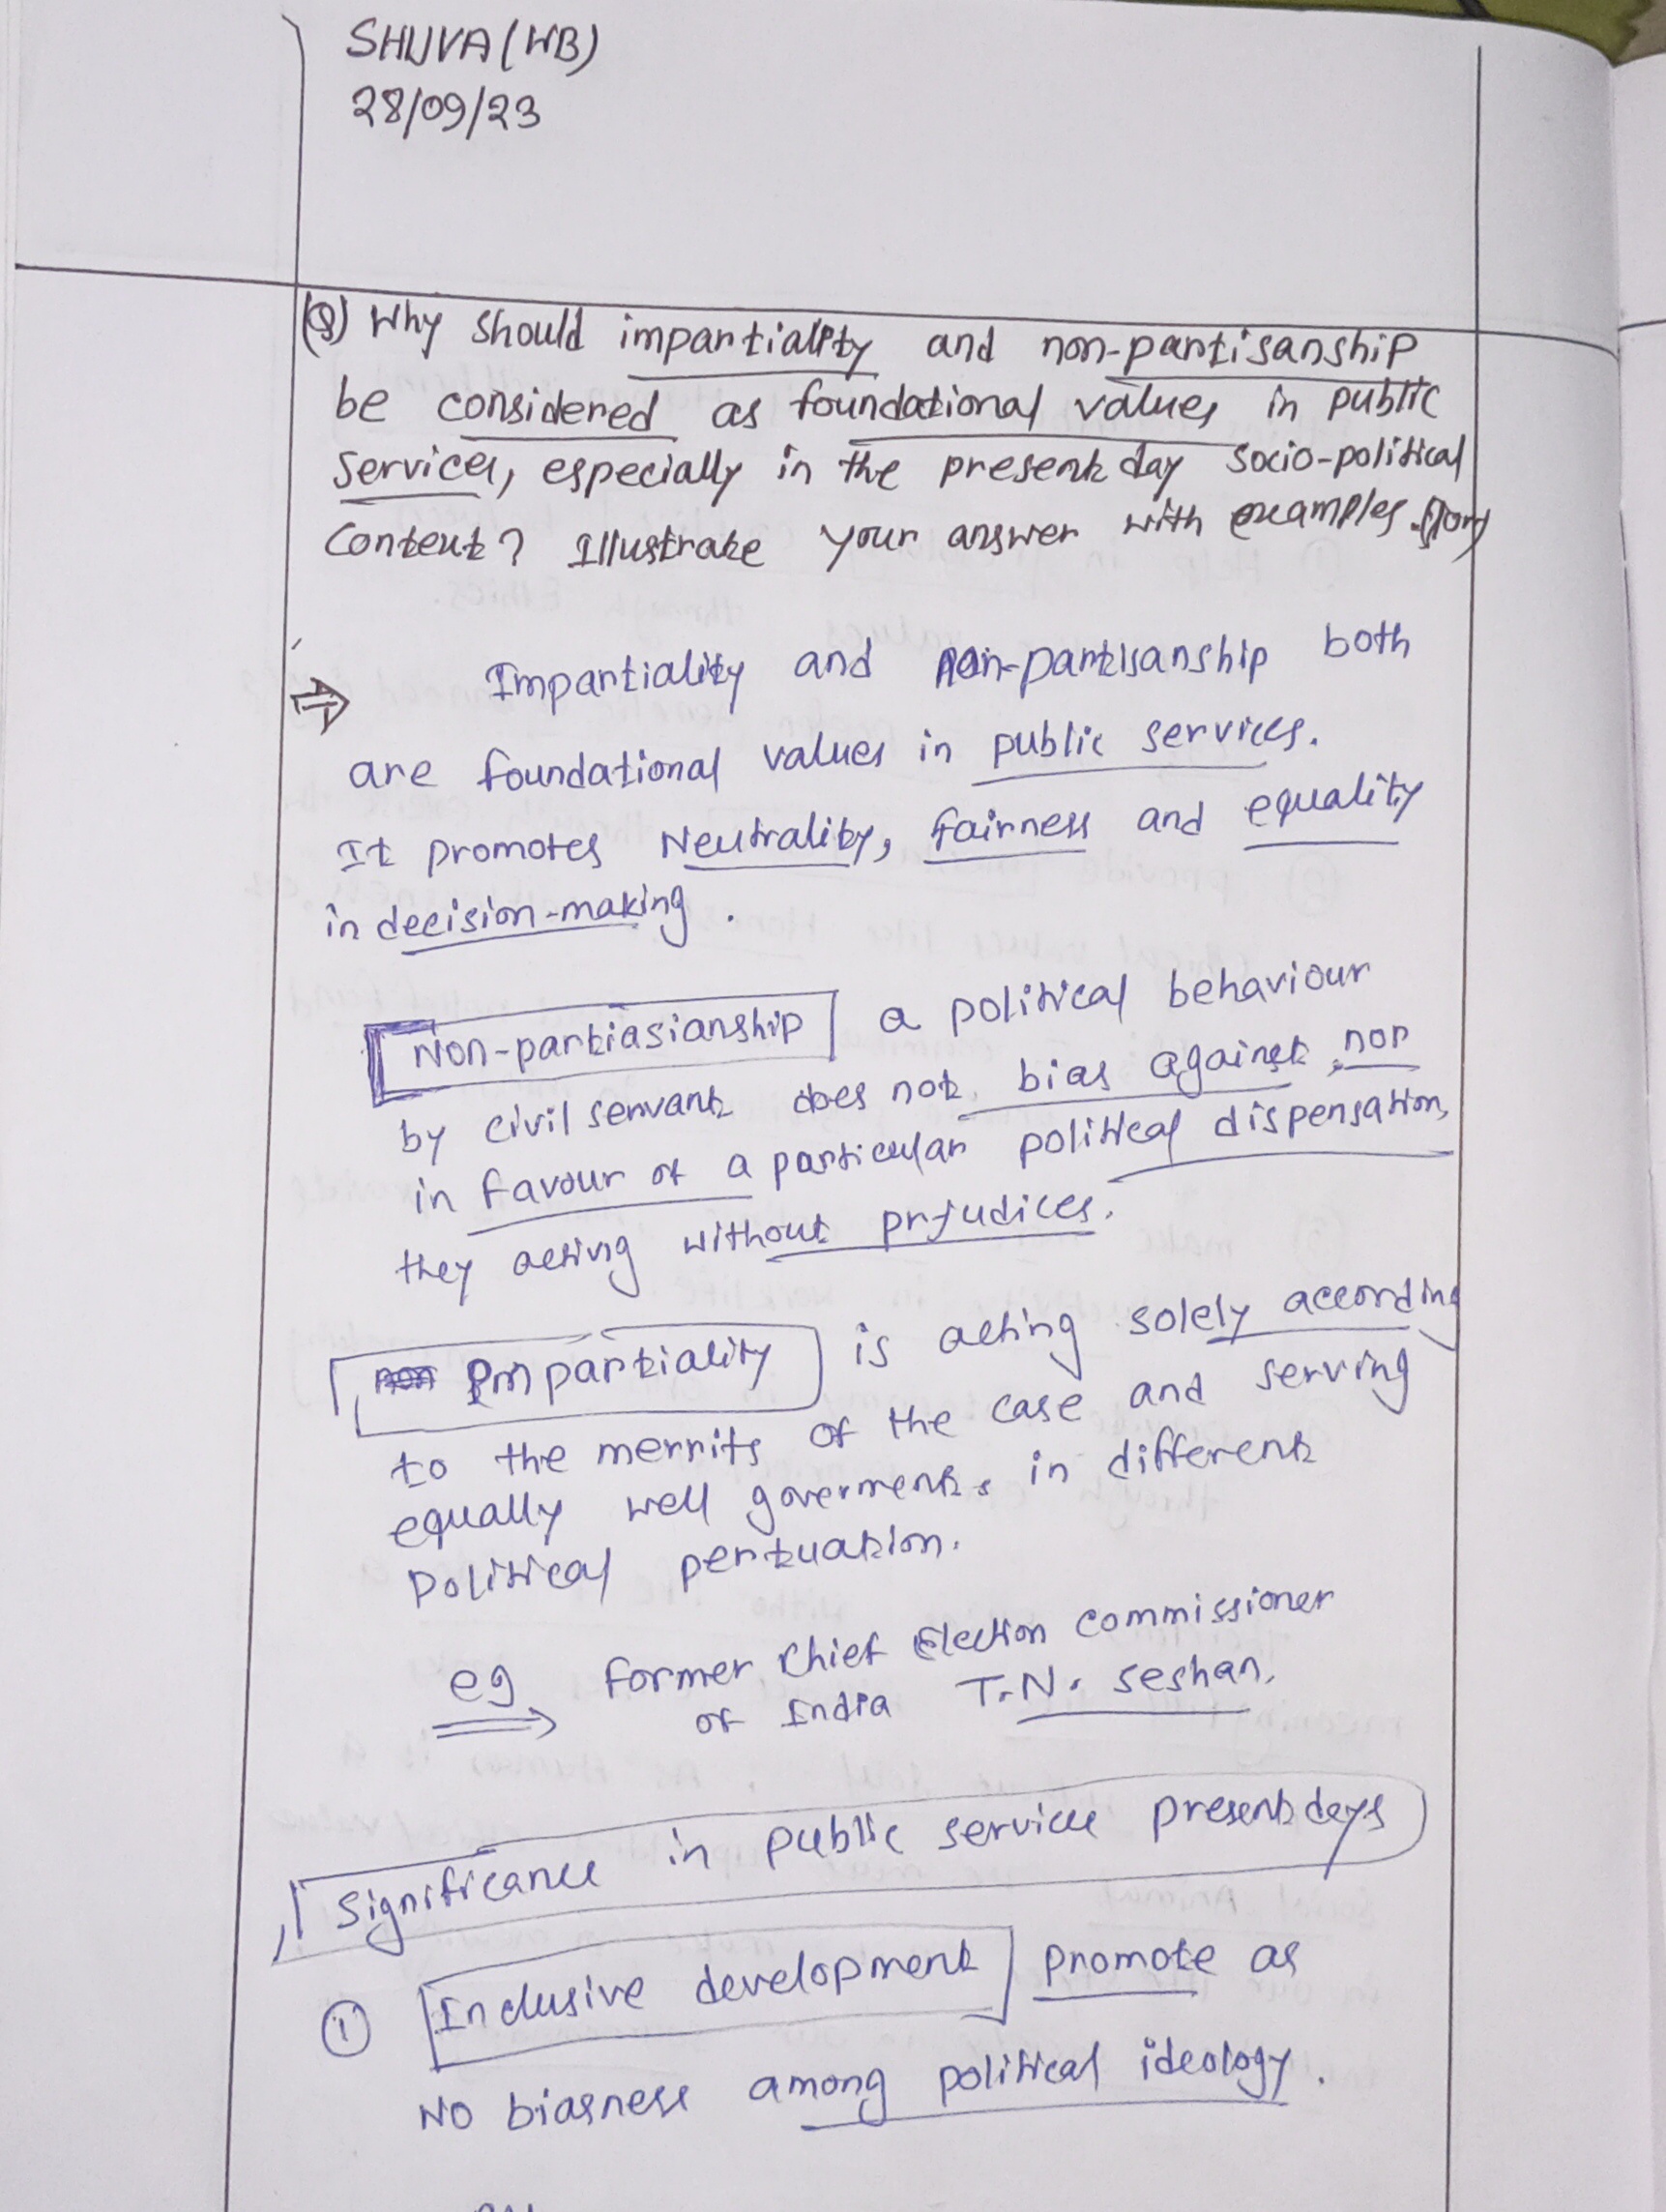 SHUVA (WB)
28/09/23
(Q) Why should impartiality and non-partisanship
be considered as foundational values in public
services, especially in the present day socio-political
context? Illustrate your answer with examples.
⇒ Impartiality and non-partisanship both
are foundational values in public services.
It promotes Neutrality, fairness and equality
in decision-making.
Non-partiasianship a political behaviour
by civil servant does not bias against, nor
in favour of a particular political dispensation,
they acting without prjudices.
Impartiality is acting solely according
to the merrits of the case and serving
equally well goverments in different
Political pertuation.
eg former Chief Election Commissioner
of India T.N. Seshan.
Significance in public service present days
① Inclusive development promote as
NO biasness among political ideology.